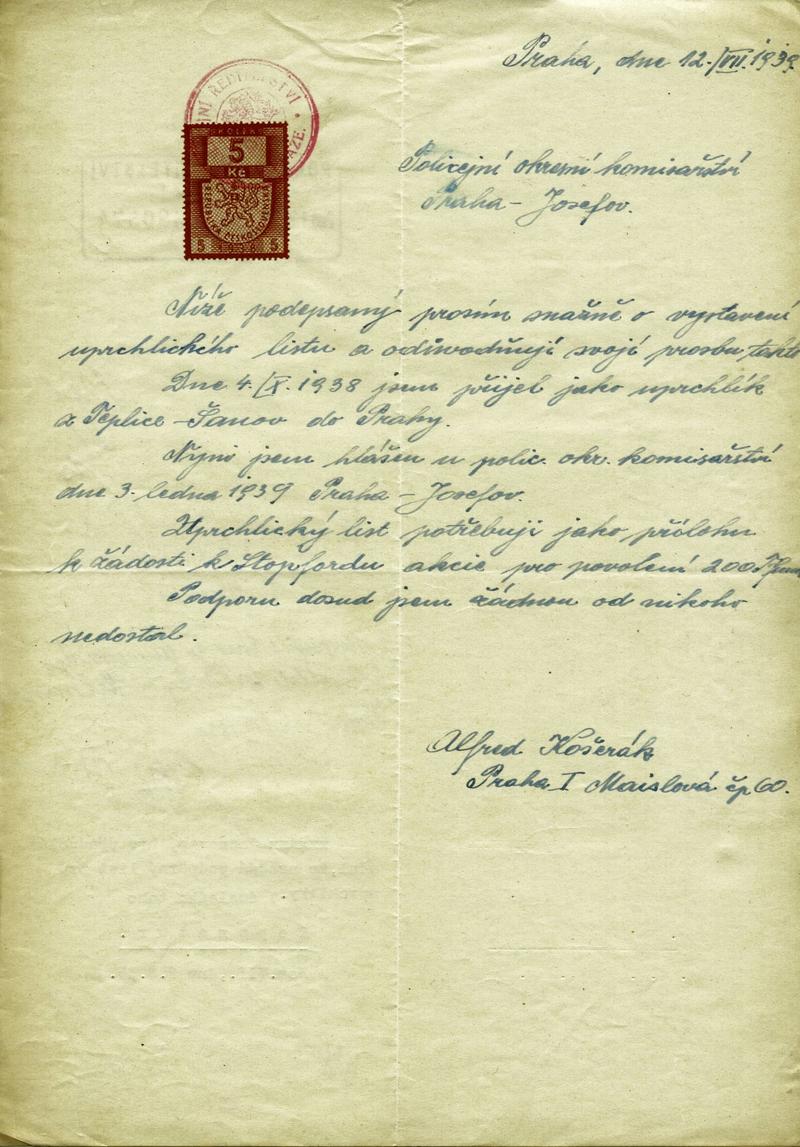 Praha, dne 12./VII. 1939.
NÍ ŘEDITELSTVÍ
AZE.
KOLEK
5
Kč
5 5
Policejní okresní komisařství
Praha - Josefov.
Níže podepsaný prosím snažně o vystavení
uprchlického listu a odůwodňuji svojí prosbu, takto
Dne 4./X. 1938 jsem přijel jako uprchlík
z Teplice - Šanov do Prahy.
Nyní jsem hlášen u polic. okr. komisařství
dne 3. ledna 1939 Praha - Josefov.
Uprchlický list potřebuji jako přílohu
k žádosti k Stopfordu akcie pro povolení 200
Podporu dosud jsem žádnou od nikoho
nedostal.
Alfred Košerák
Praha I Maislová čp 60.